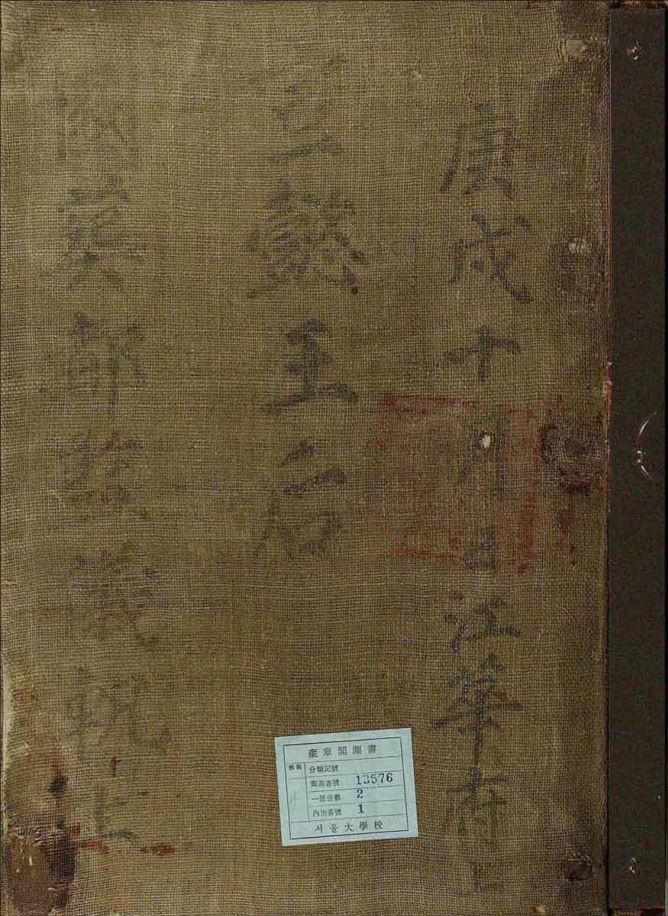 庚戌十月日江華府上
宣懿王后
國葬都監儀軌上
奎章閣圖書
分類記號
圖書番號 13576
一部冊數 2
內別番號 1
서울大學校